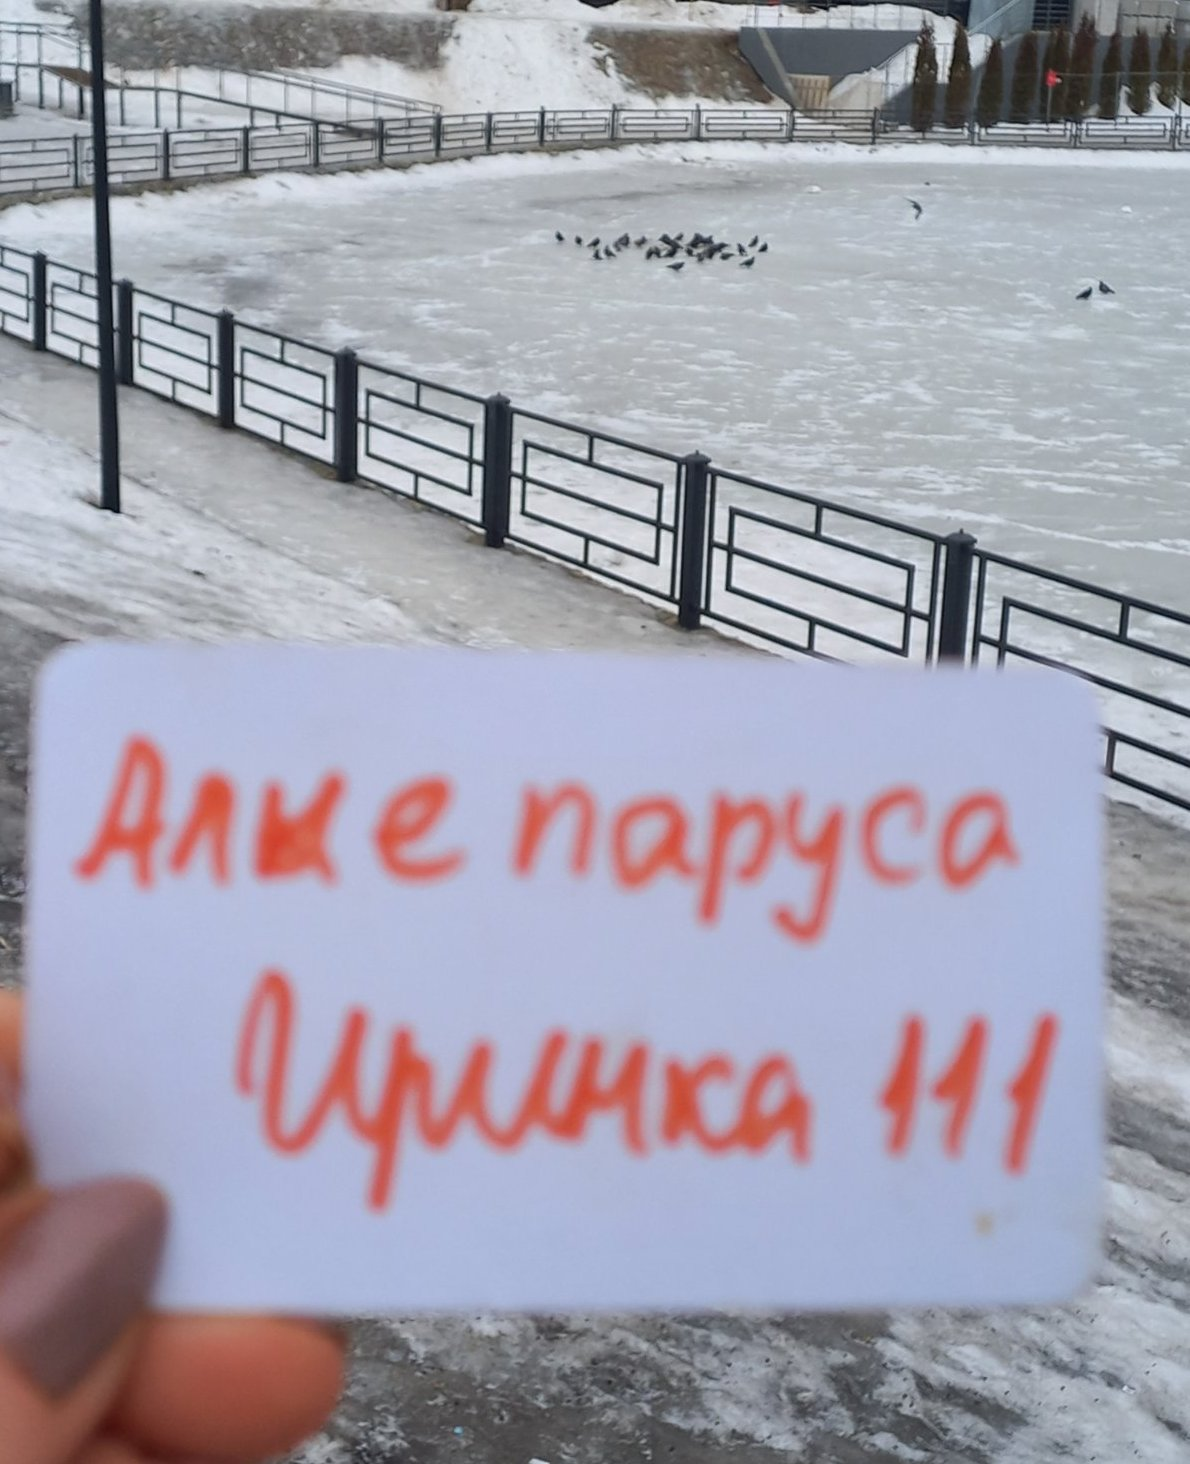 Алые паруса
Иринка 111